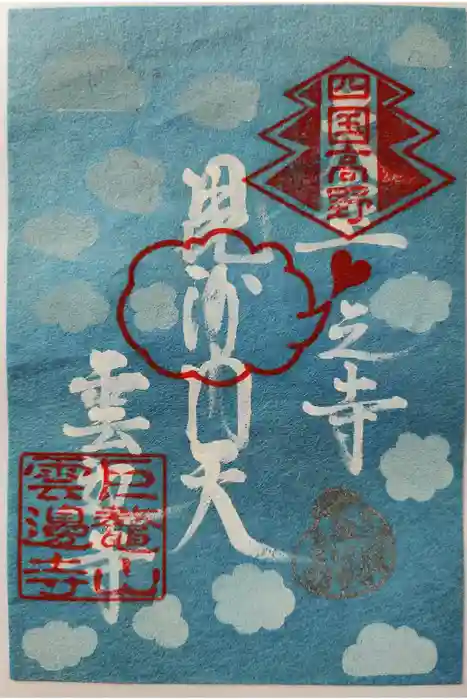 四国高野
之寺
毘沙門天
雲辺寺
巨鼇山
雲邊寺